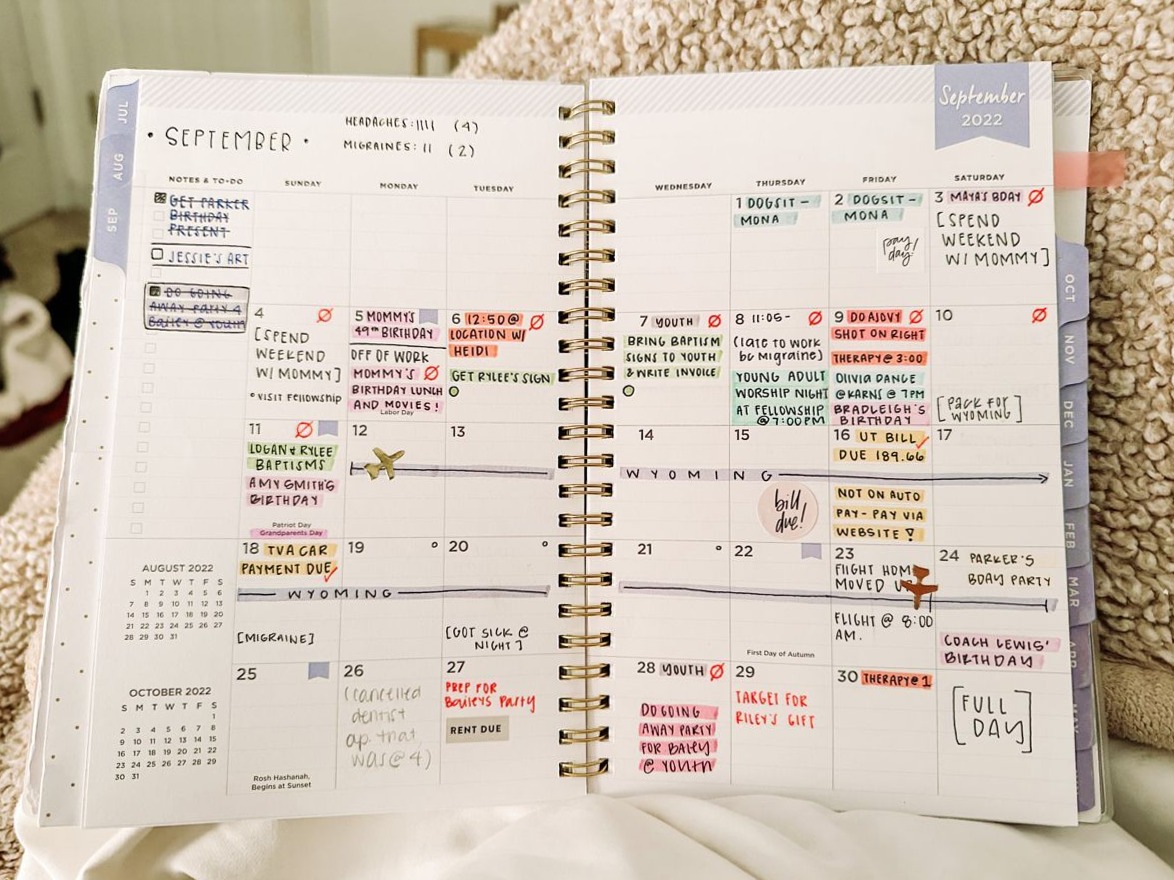 JUL
AUG
SEP
• SEPTEMBER •
HEADACHES: IIII (4)
MIGRAINES: II (2)
September
2022
NOTES & TO-DO
SUNDAY
MONDAY
TUESDAY
WEDNESDAY
THURSDAY
FRIDAY
SATURDAY
GET PARKER
BIRTHDAY
PRESENT
JESSIE'S ART
DO GOING
AWAY PARTY 4
Bailey @ Youth
1 DOGSIT -
MONA
2 DOGSIT -
MONA
pay
day!
3 MAYA'S BDAY
[SPEND
WEEKEND
W/ MOMMY]
4
[SPEND
WEEKEND
W/ MOMMY]
• VISIT FELLOWSHIP
5 MOMMY'S
49TH BIRTHDAY
OFF OF WORK
MOMMY'S
BIRTHDAY LUNCH
AND MOVIES!
Labor Day
6 12:50 @
LOCATION W/
HEIDI
GET RYLEE'S SIGN
7 YOUTH
BRING BAPTISM
SIGNS TO YOUTH
& WRITE INVOICE
8 11:05-
(late to work
bc migraine)
YOUNG ADULT
WORSHIP NIGHT
AT FELLOWSHIP
@ 7:00PM
9 DO AJOVY
SHOT ON RIGHT
THERAPY @ 3:00
OLIVIA DANCE
@ KARNS @ 7PM
BRADLEIGH'S
BIRTHDAY
10
[PACK FOR
WYOMING]
11
LOGAN & RYLEE
BAPTISMS
AMY SMITH'S
BIRTHDAY
Patriot Day
Grandparents Day
12
13
14
15
16 UT BILL
DUE 189.66
NOT ON AUTO
PAY - PAY VIA
WEBSITE !
17
WYOMING
bill
due!
18 TVA CAR
PAYMENT DUE
WYOMING
[MIGRAINE]
19
20
[GOT SICK @
NIGHT]
21
22
First Day of Autumn
23
FLIGHT HOME
MOVED
FLIGHT @ 8:00
AM.
24 PARKER'S
BDAY PARTY
COACH LEWIS'
BIRTHDAY
25
Rosh Hashanah,
Begins at Sunset
26
(cancelled
dentist
ap. that
was @ 4)
27
PREP FOR
Baileys Party
RENT DUE
28 YOUTH
DO GOING
AWAY PARTY
FOR BAILEY
@ YOUTH
29
TARGET FOR
RILEY'S GIFT
30 THERAPY @ 1
[FULL
DAY]
AUGUST 2022
S M T W T F S
1 2 3 4 5 6
7 8 9 10 11 12 13
14 15 16 17 18 19 20
21 22 23 24 25 26 27
28 29 30 31
OCTOBER 2022
S M T W T F S
1
2 3 4 5 6 7 8
9 10 11 12 13 14 15
16 17 18 19 20 21 22
23 24 25 26 27 28 29
30 31
OCT
NOV
DEC
JAN
FEB
MAR
APR
MAY